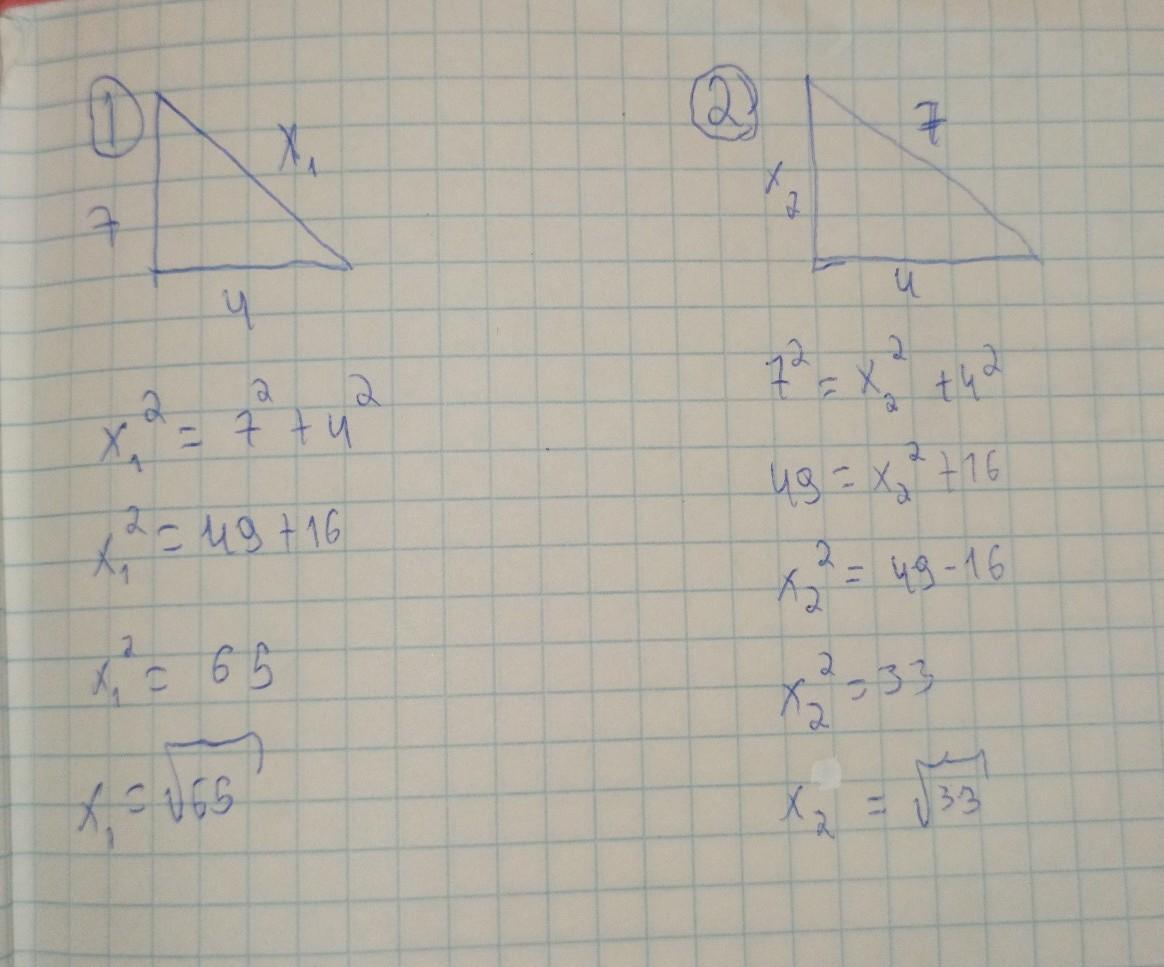 1
x₁
7
4
x₁² = 7² + 4²
x₁² = 49 + 16
x₁² = 65
x₁ = √65
2
7
x₂
4
7² = x₂² + 4²
49 = x₂² + 16
x₂² = 49 - 16
x₂² = 33
x₂ = √33